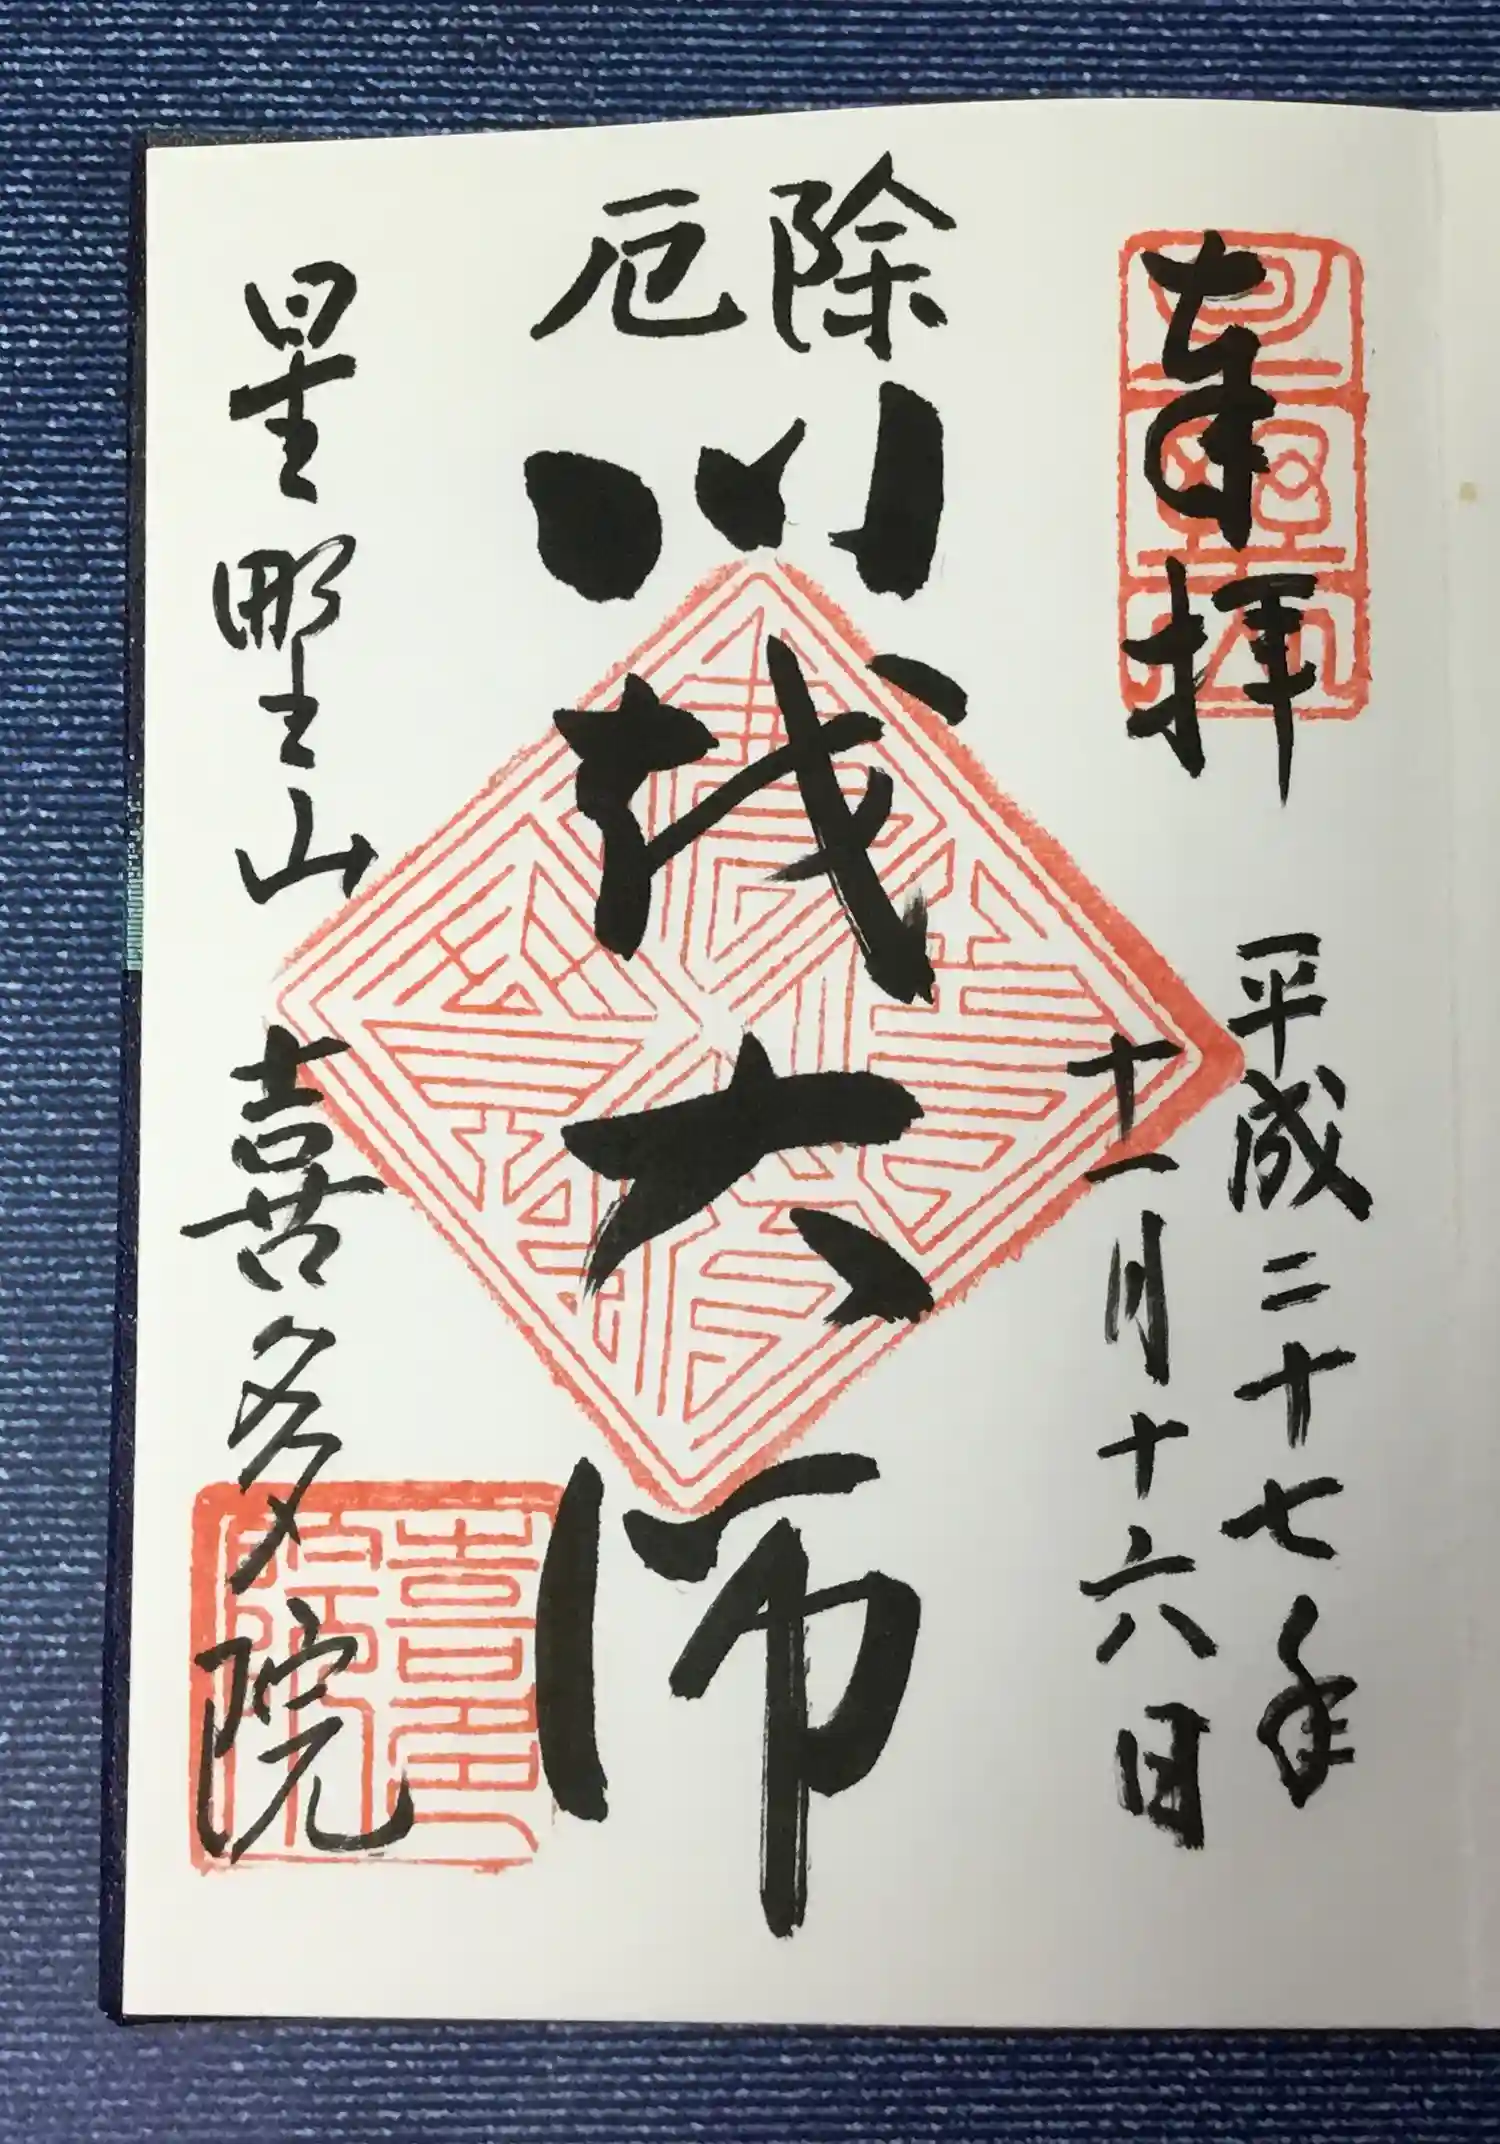 奉拝
平成二十七年
十一月十六日
除厄
川越大師
星野山 喜多院
喜多院